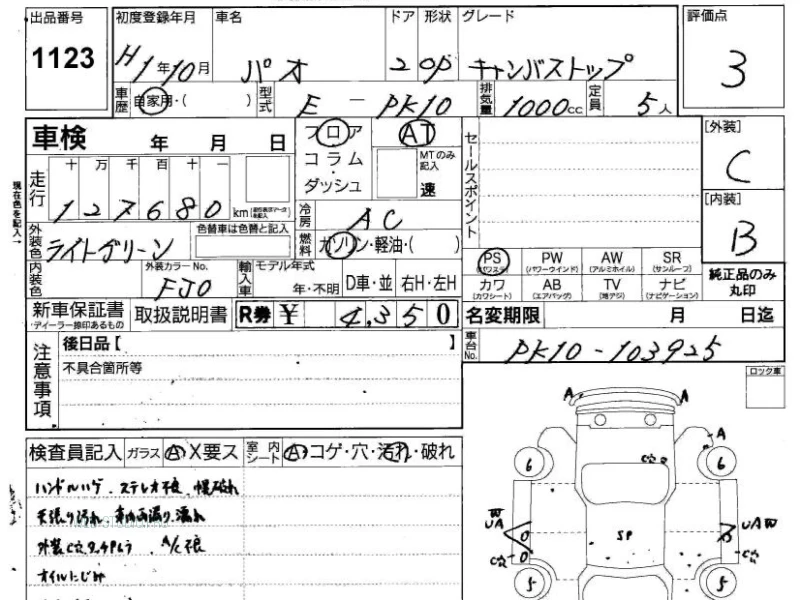 出品番号 初度登録年月 車名 ドア 形状 グレード 評価点
1123 H1年10月 パオ 2 OP キャンバストップ 3
車歴 自家用・( ) 型式 E - PK10 排気量 1000cc 定員 5人
車検 年 月 日 フロア AT セールスポイント [外装]
C
走行 十 万 千 百 十 一 コラム MTのみ記入
・ダッシュ 速 [内装]
127680 km B
現在色を記入→
外装色 ライトグリーン 色替車は色替と記入 冷房 AC
燃料 ガソリン・軽油・( )
PS (パワステ) PW (パワーウインド) AW (アルミホイル) SR (サンルーフ)
内装色 外装カラーNo. FJ0 輸入車 モデル年式 年・不明 D車・並 右H・左H
カワ (カワシート) AB (エアバッグ) TV (地デジ) ナビ (ナビゲーション) 純正品のみ丸印
新車保証書 ・ディーラー捺印あるもの 取扱説明書 R券 ¥ 4,350 名変期限 月 日迄
注意事項 後日品【 】 車台No. PK10-103925
不具合箇所等 ロック車
検査員記入 ガラス A X要ス 室内シート A コゲ・穴・汚れ・破れ
ハンドルハゲ、ステレオ不良、幌破れ
天張り汚れ 車内雨漏り、濡れ
外装C穴 タッチPムラ A/C不良
オイルにじみ
A A
A
C穴
6 6
W
UA UAW
SP
C穴 C穴
5 5